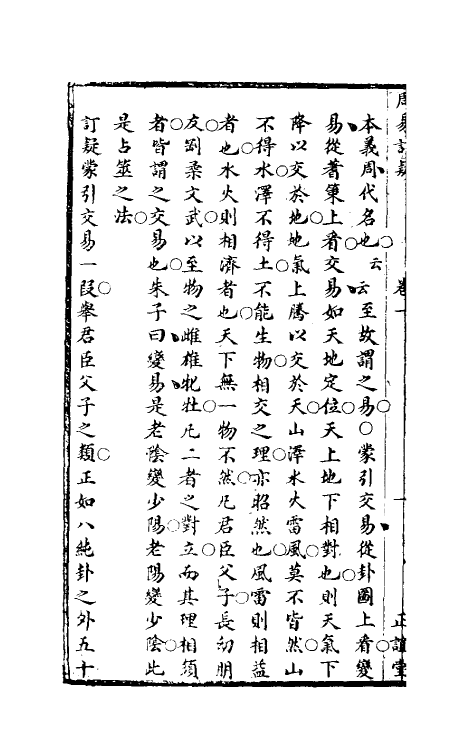 周易訂疑 卷一 一 正誼堂
本義周代名也云云至故謂之易○蒙引交易從卦圖上看變
易從蓍策上看交易如天地定位天上地下相對也則天氣下
降以交於地地氣上騰以交於天山澤水火雷風莫不皆然山
不得水澤不得土不能生物相交之理亦昭然也風雷則相益
者也水火則相濟者也天下無一物不然凡君臣父子長幼朋
友剛柔文武以至物之雌雄牝牡凡二者之對立而其理相須
者皆謂之交易也朱子曰變易是老陰變少陽老陽變少陰此
是占筮之法
訂疑蒙引交易一段舉君臣父子之類正如八純卦之外五十